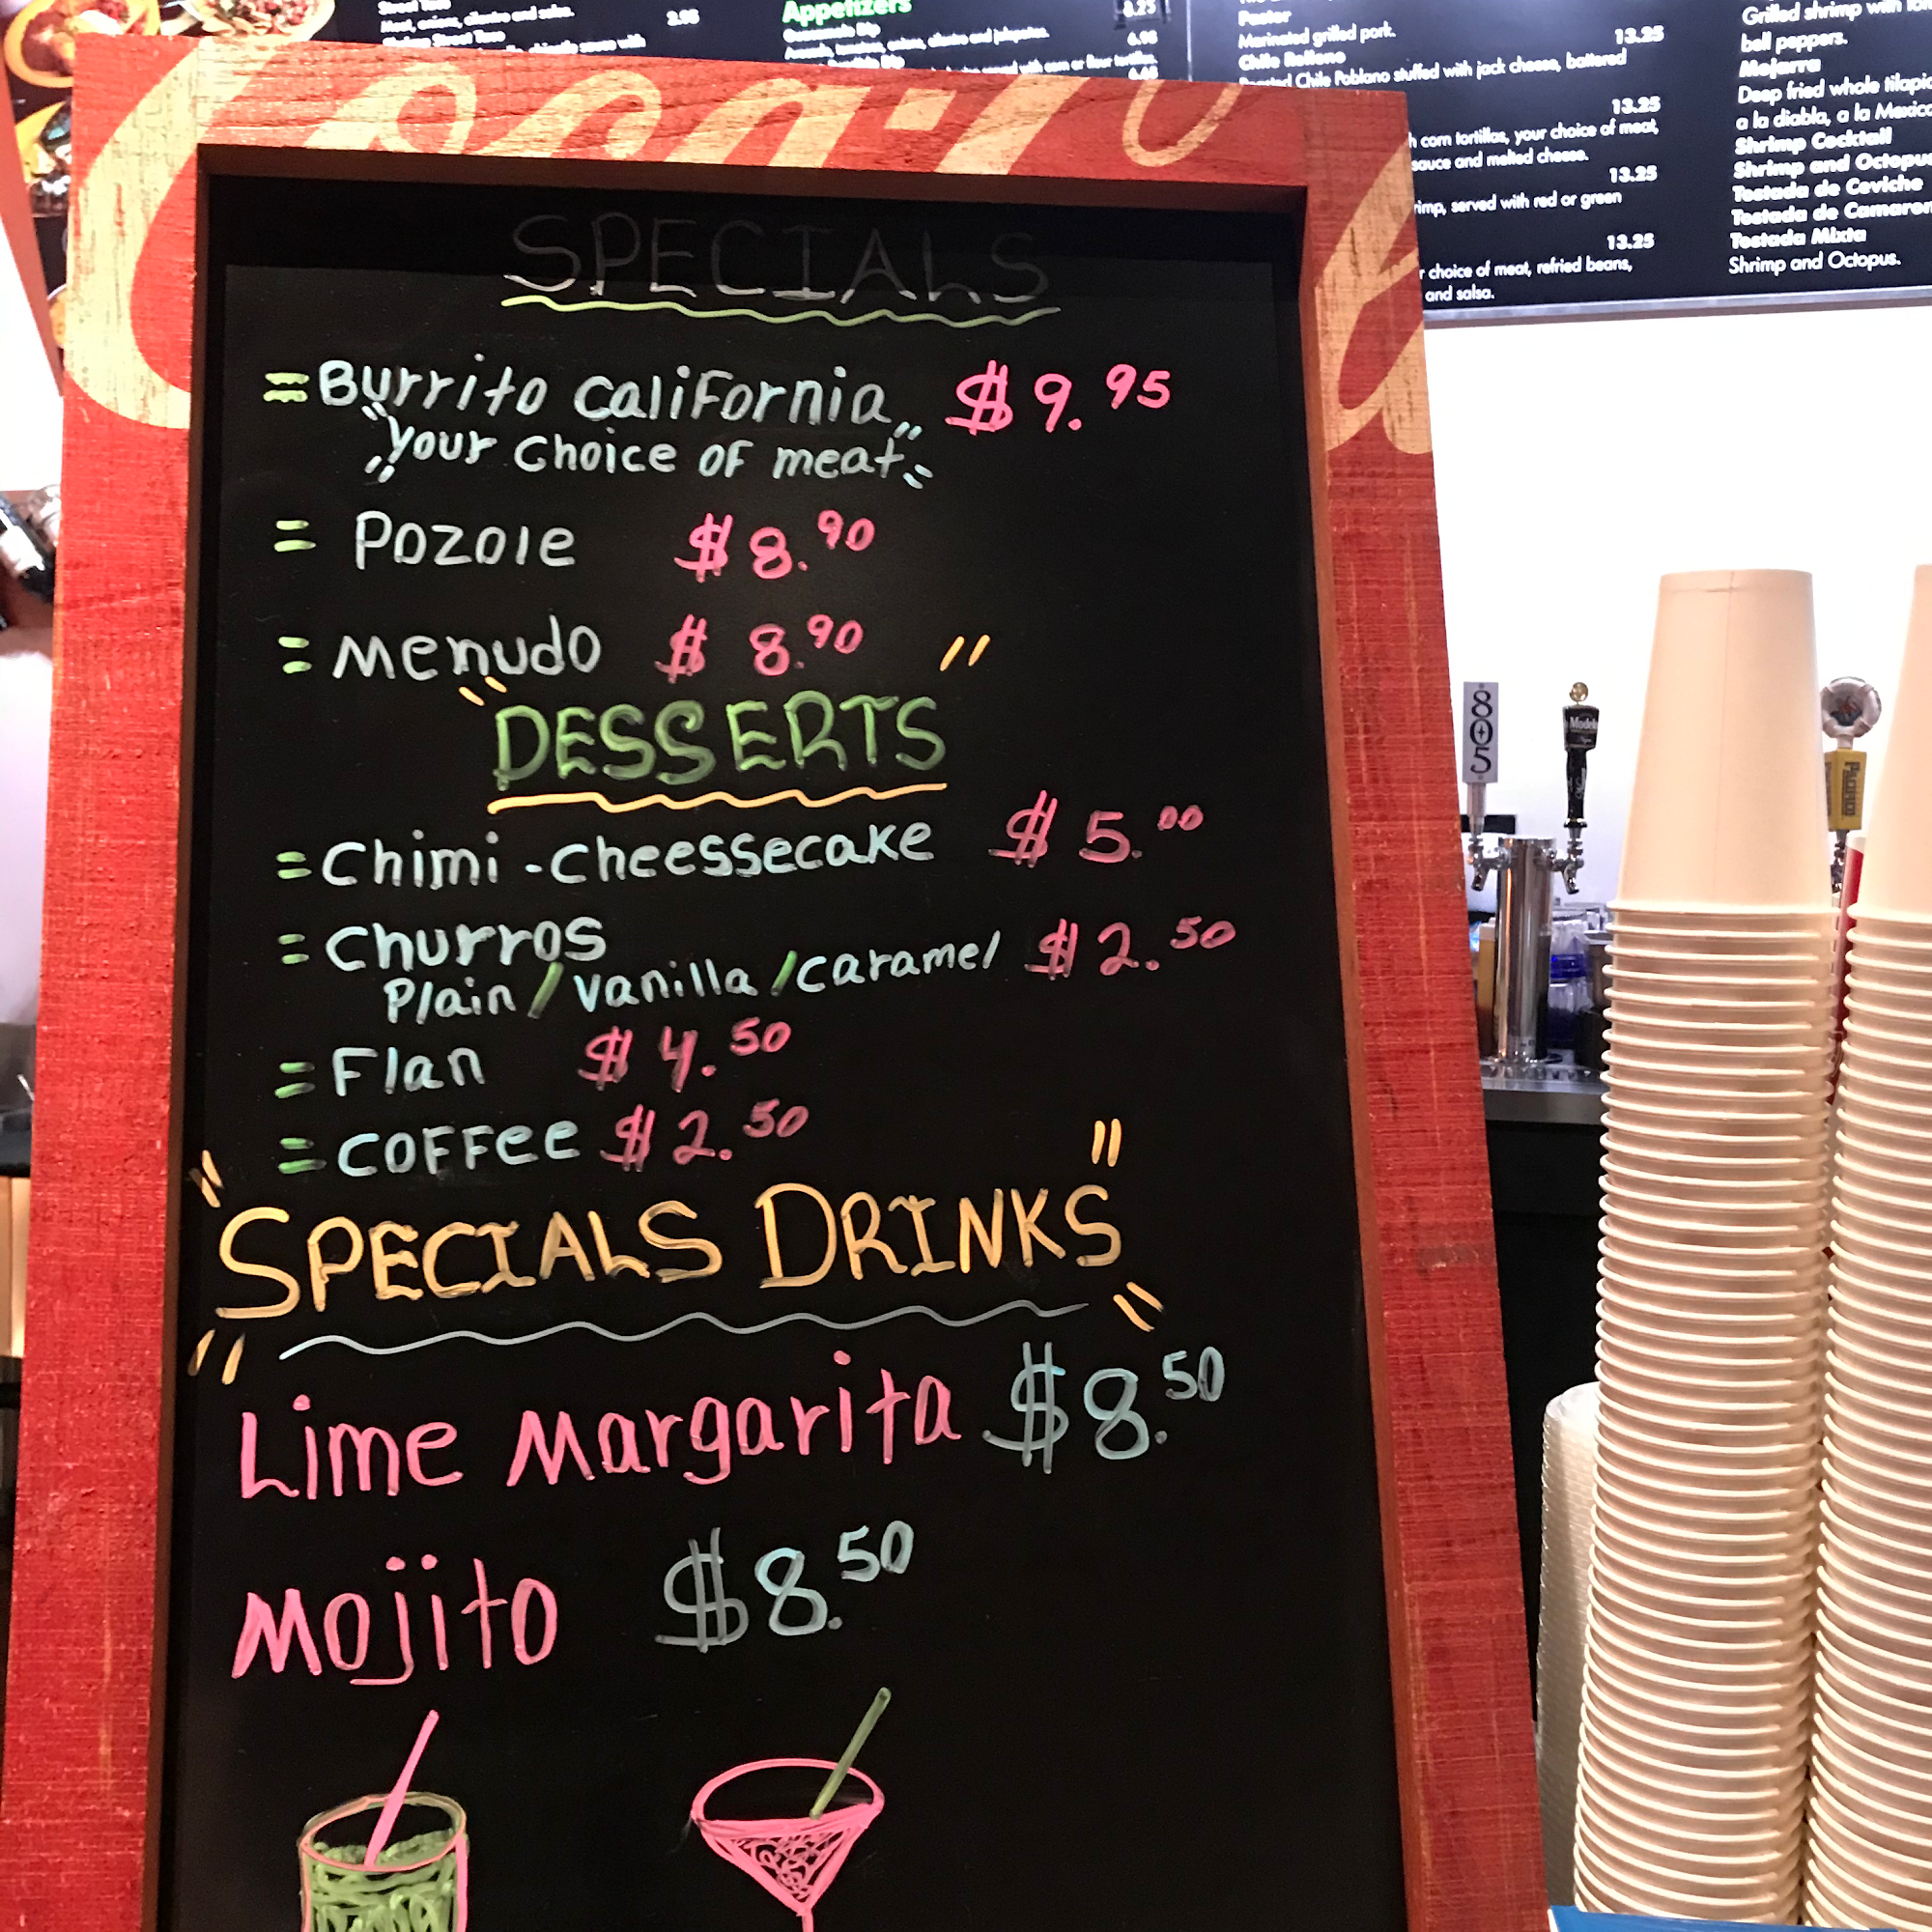 Street Taco
Meat, onions, cilantro and salsa. 2.95
Appetizers
8.25
Guacamole Dip
6.95
Pastor
Marinated grilled pork. 13.25
Chile Relleno
Chile Poblano stuffed with jack cheese, battered
13.25
corn tortillas, your choice of meat,
sauce and melted cheese.
13.25
served with red or green
13.25
choice of meat, refried beans,
and salsa.
Grilled shrimp with
bell peppers.
Mojarra
Deep fried whole
a la diabla, a la
Shrimp Cocktail
Shrimp and
Tostada de Ceviche
Tostada de
Tostada Mixta
Shrimp and Octopus.
SPECIALS
= Burrito California $9.95
"your choice of meat"
= Pozole $8.90
= Menudo $8.90
"DESSERTS"
= Chimi-cheessecake $5.00
= Churros
Plain / Vanilla / Caramel $2.50
= Flan $4.50
= Coffee $2.50
"SPECIALS DRINKS"
Lime Margarita $8.50
Mojito $8.50
805
Modelo